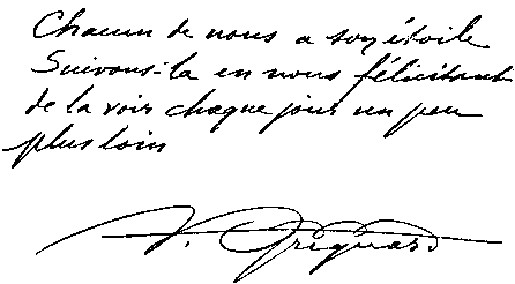 Chacun de nous a son étoile
Suivons-la en nous félicitant
de la voir chaque jour un peu
plus loin
V. Grignard